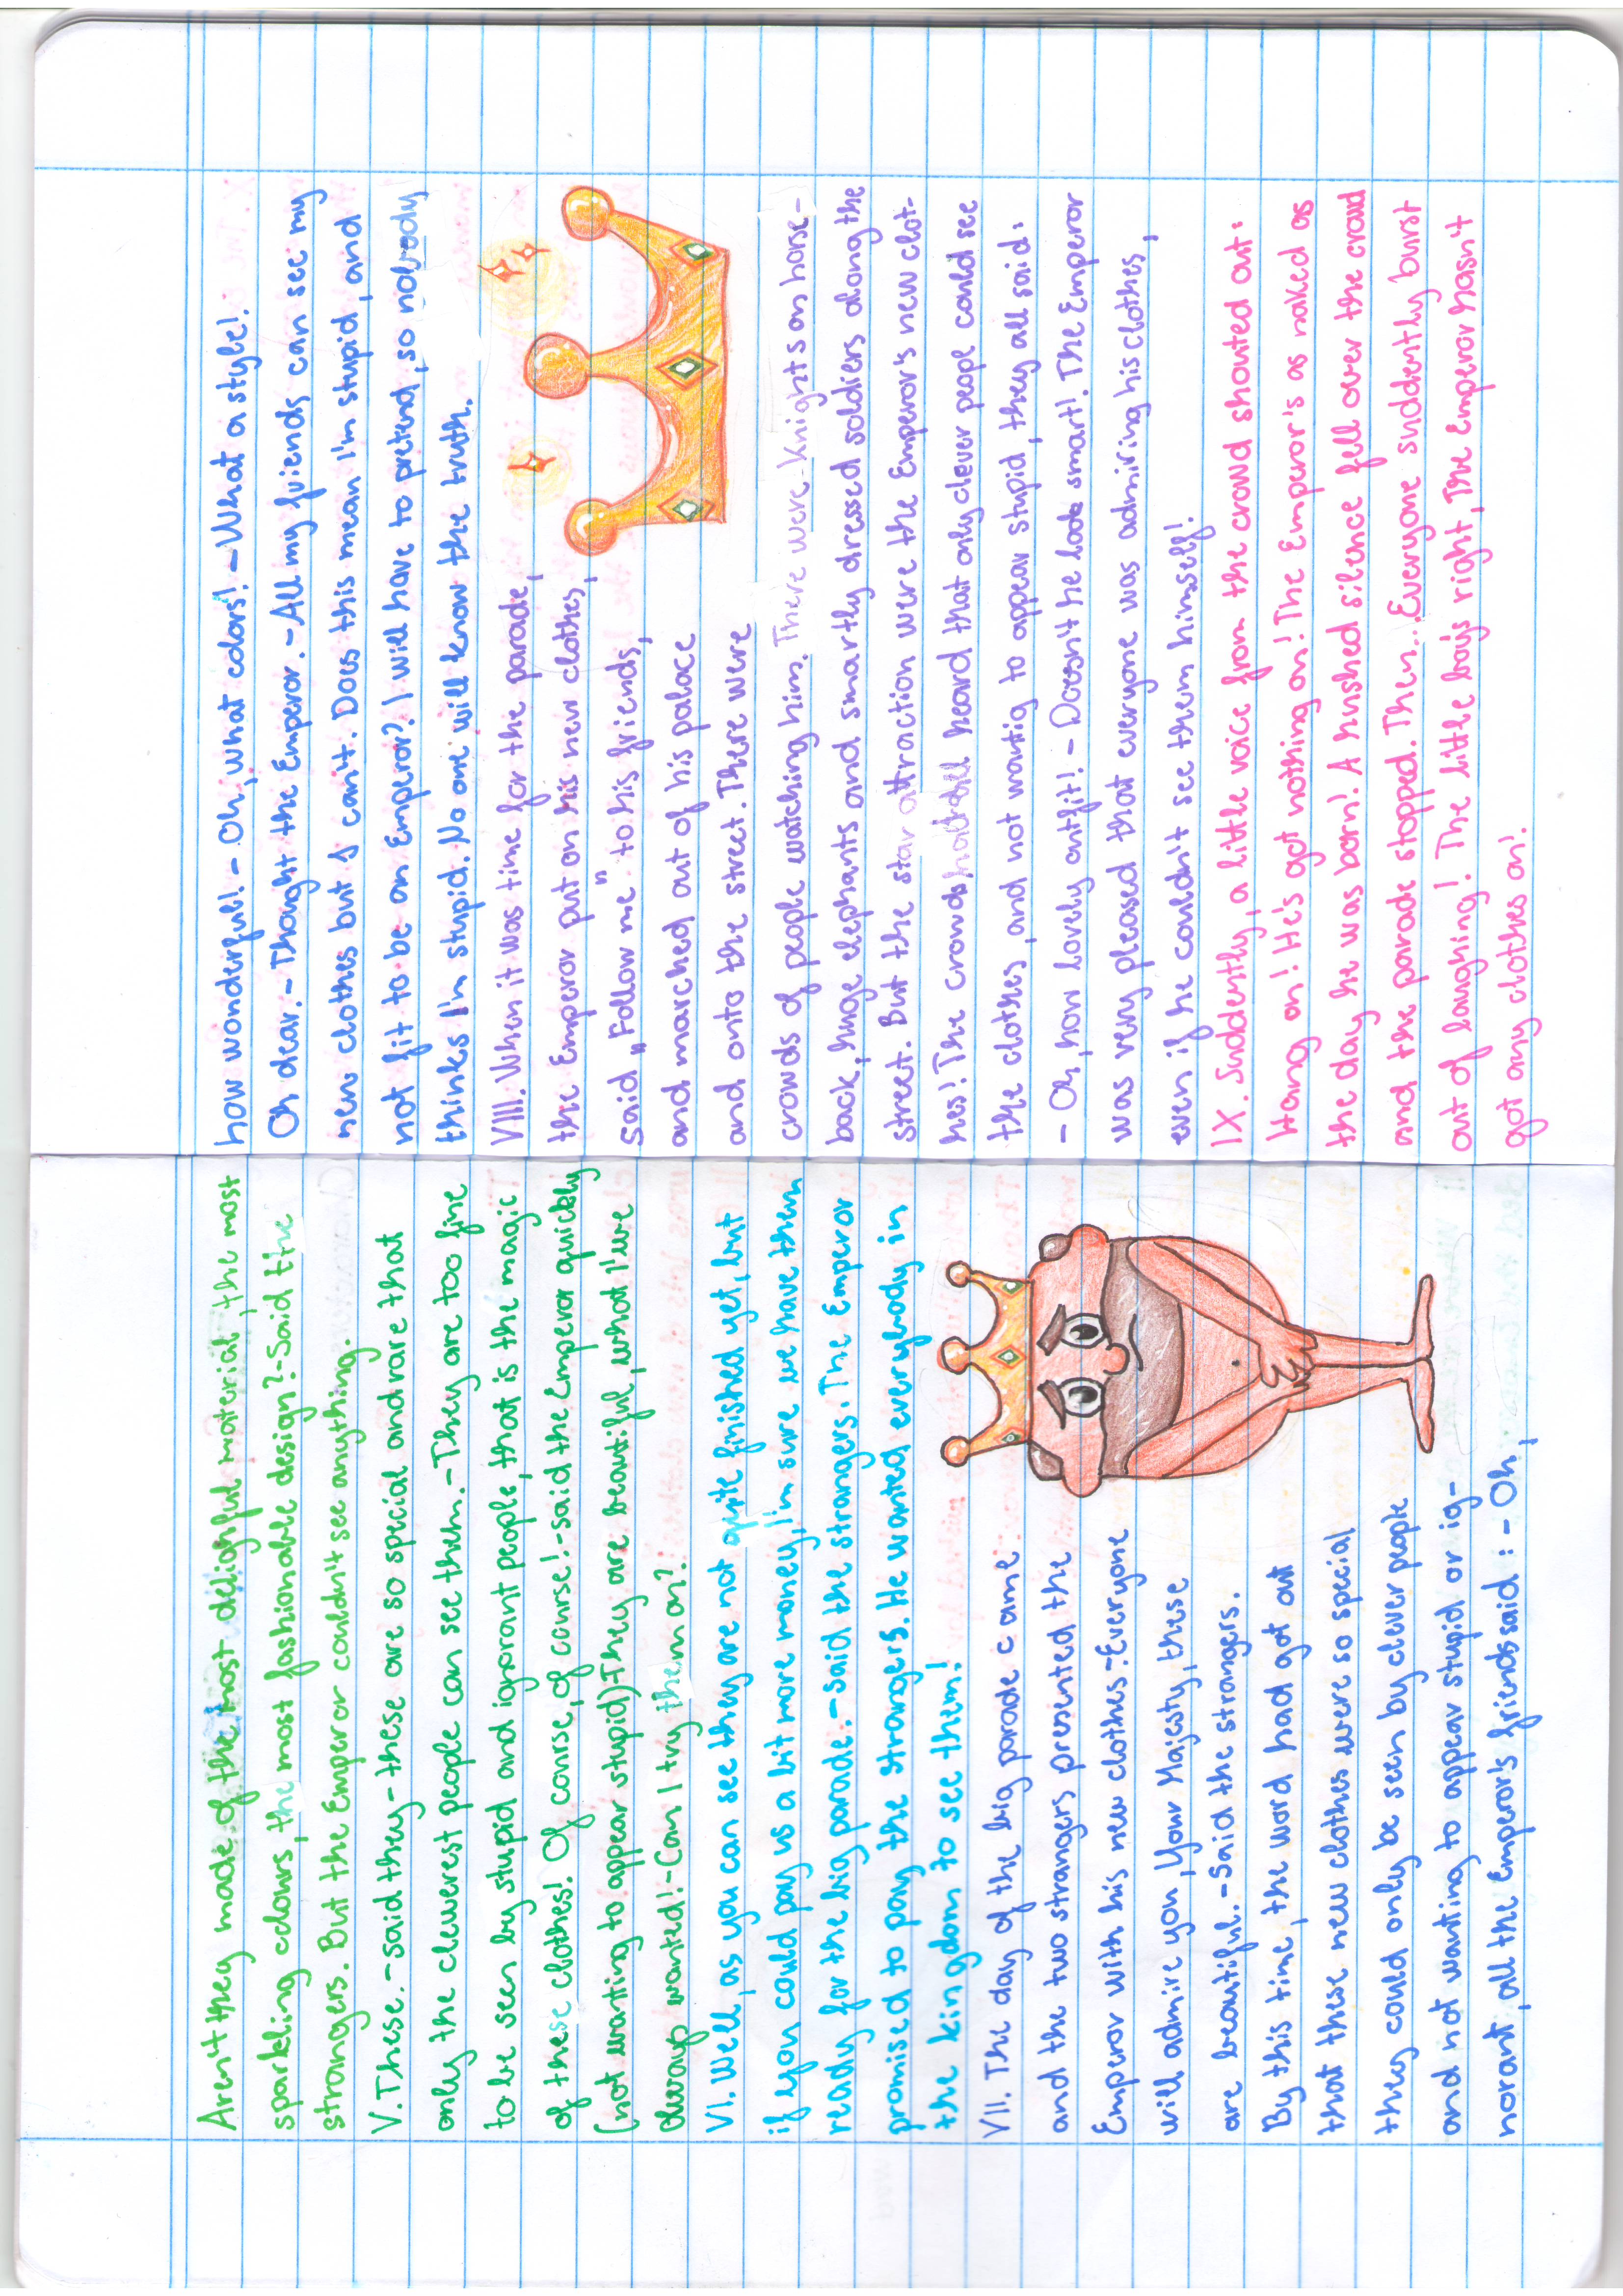 Aren't they made of the most delighful material, the most
sparkling colours, the most fashionable design?-Said the
strangers. But the Emperor couldn't see anything.
V. These.-said they-these are so special and rare that
only the cleverest people can see them.-They are too fine
to be seen by stupid and ignorant people, that is the magic
of these clothes! Of course, of course!-said the Emperor quickly
(not wanting to appear stupid)-They are beautiful, what I've
always wanted!-Can I try them on?
VI. Well, as you can see they are not quite finished yet, but
if you could pay us a bit more money, I'm sure we have them
ready for the big parade.-Said the strangers. The Emperor
promised to pay the strangers. He wanted everybody in
the kingdom to see them!
VII. The day of the big parade came
and the two strangers presented the
Emperor with his new clothes-Everyone
will admire you, Your Majesty, these
are beautiful.-Said the strangers.
By this time, the word had got out
that these new clothes were so special
they could only be seen by clever people
and not wanting to appear stupid or ig-
norant, all the Emperors friends said: - Oh,
how wonderful! - Oh, what colors! - What a style!
Oh dear.- Thought the Emperor. - All my friends can see my
new clothes but I can't. Does this mean I'm stupid, and
not fit to be an Emperor? I will have to pretend, so nobody
thinks I'm stupid. No one will know the truth.
VIII. When it was time for the parade,
the Emperor put on his new clothes,
said „Follow me" to his friends,
and marched out of his palace
and onto the street. There were
crowds of people watching him. There were Knights on horse-
back, huge elephants and smartly dressed soldiers along the
street. But the star attraction were the Emperor's new clot-
hes! The crowds had all heard that only clever people could see
the clothes, and not wantig to appear stupid, they all said:
- Oh, how lovely outfit! - Doesn't he look smart! The Emperor
was very pleased that everyone was admiring his clothes,
even if he couldn't see them himself!
IX. Suddently, a little voice from the crowd shouted out:
Hang on! He's got nothing on! The Emperor's as naked as
the day he was born! A hushed silence fell over the crowd
and the parade stopped. Then... Everyone suddently burst
out of laughing! The little boy's right, The Emperor hasn't
got any clothes on!